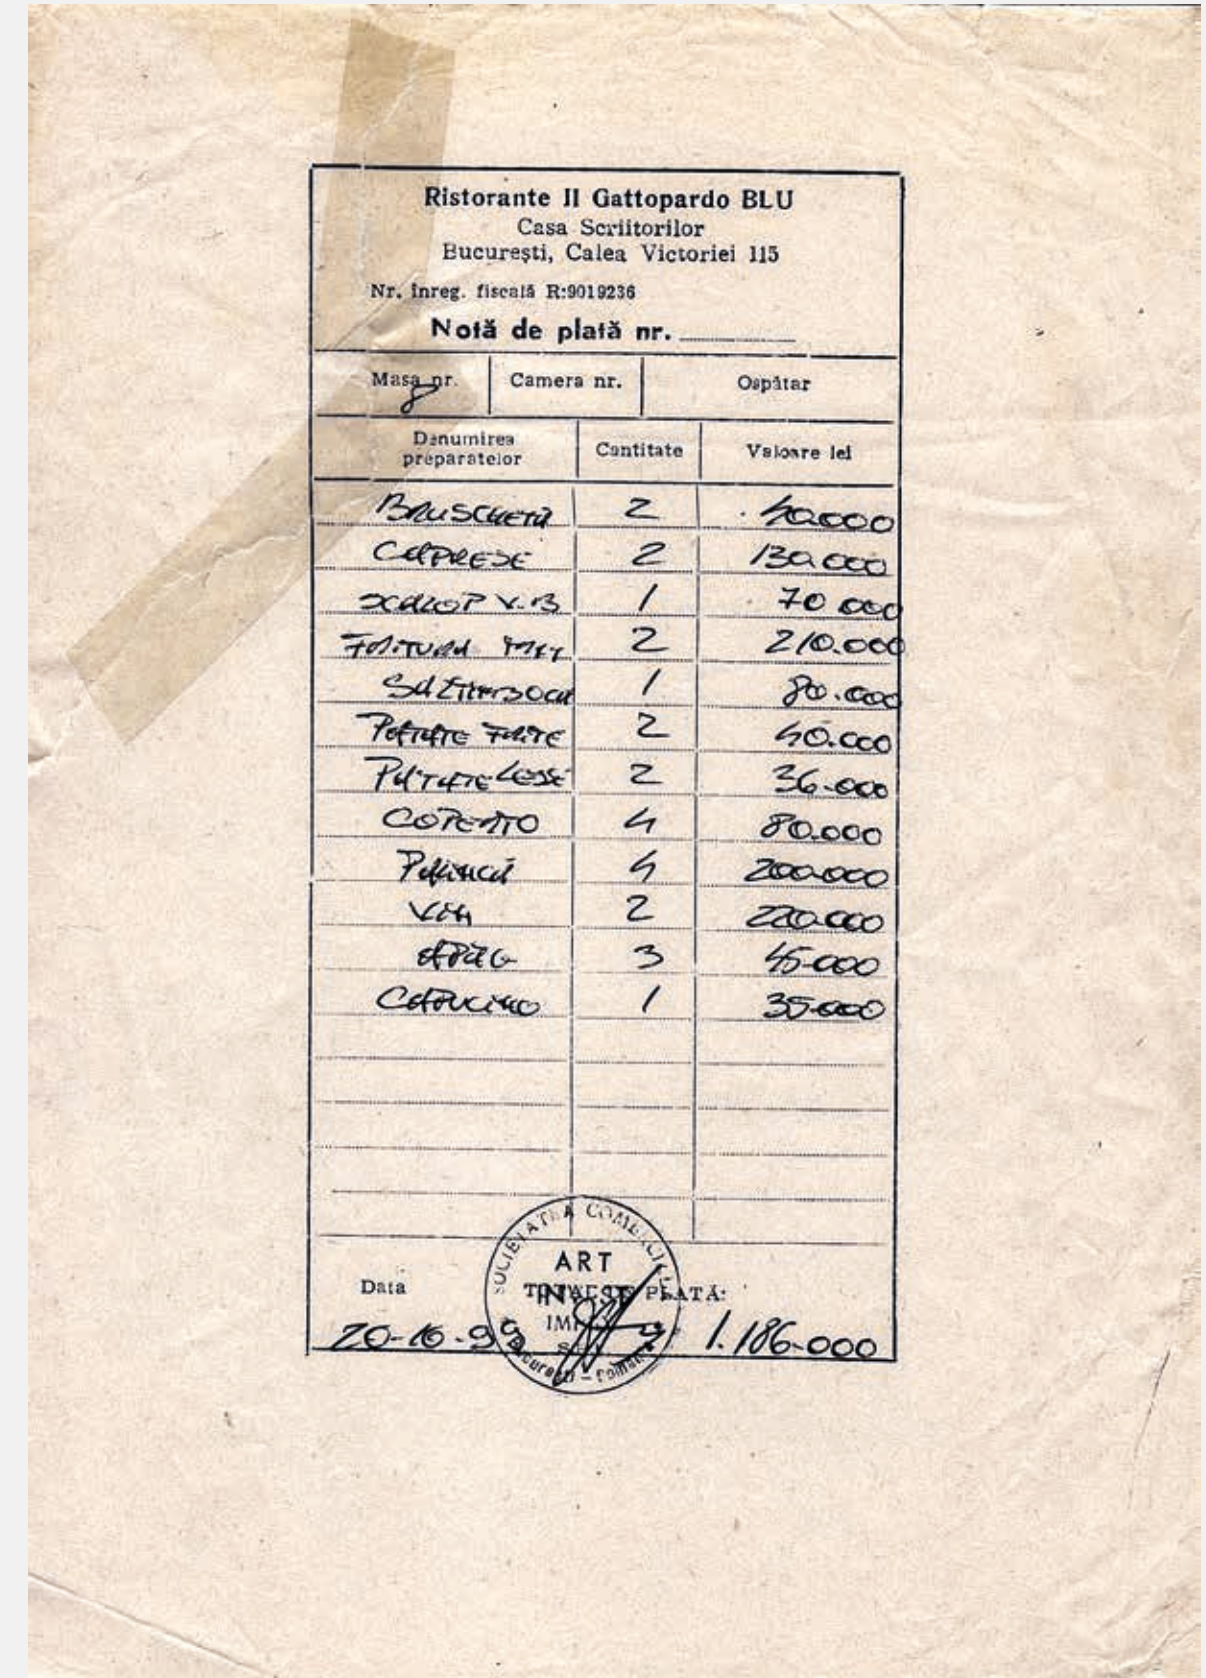 Ristorante Il Gattopardo BLU
Casa Scriitorilor
București, Calea Victoriei 115
Nr. înreg. fiscală R:9019236
Notă de plată nr.
Masa nr. Camera nr. Ospătar
8
Denumirea preparatelor Cantitate Valoare lei
BRUSCHETA 2 40.000
CAPRESE 2 130.000
SCALOP V.B 1 70 000
FRITURA MIX 2 210.000
SALTIMBOCA 1 80.000
PATATE FRITE 2 40.000
PATATE LESSE 2 36.000
COPERTO 4 80.000
PALINCĂ 4 200.000
VIN 2 220.000
APĂ G 3 45.000
CAPUCINO 1 35.000
SOCIETATEA COMERCIALĂ
ART
Data TOTAL DE PLATĂ:
INVEST
20-10-9 1.186.000
București - România